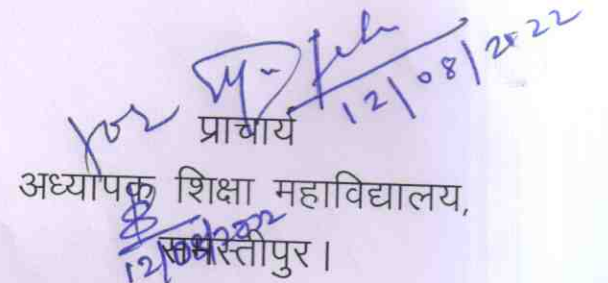 for 12/08/2022
प्राचार्य
अध्यापक शिक्षा महाविद्यालय,
समस्तीपुर।
12/08/2022